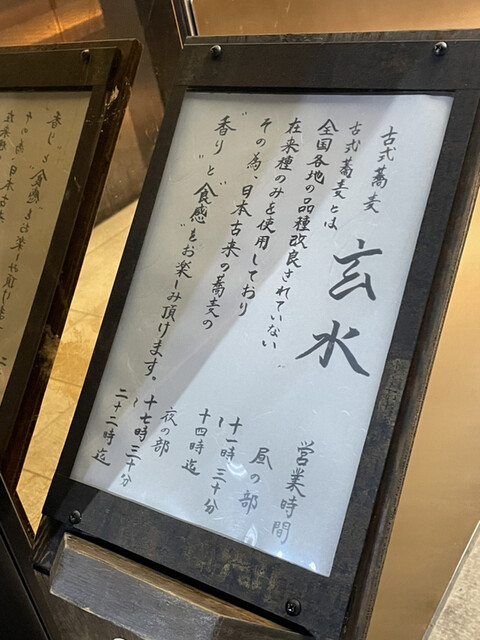 古式蕎麦
玄水
古式蕎麦とは
全国各地の品種改良されていない
在来種のみを使用しており
その為、日本古来の蕎麦の
"香り"と"食感"をお楽しみ頂けます。
営業時間
昼の部
十一時三十分
~
十四時迄
夜の部
十七時三十分
~
二十二時迄